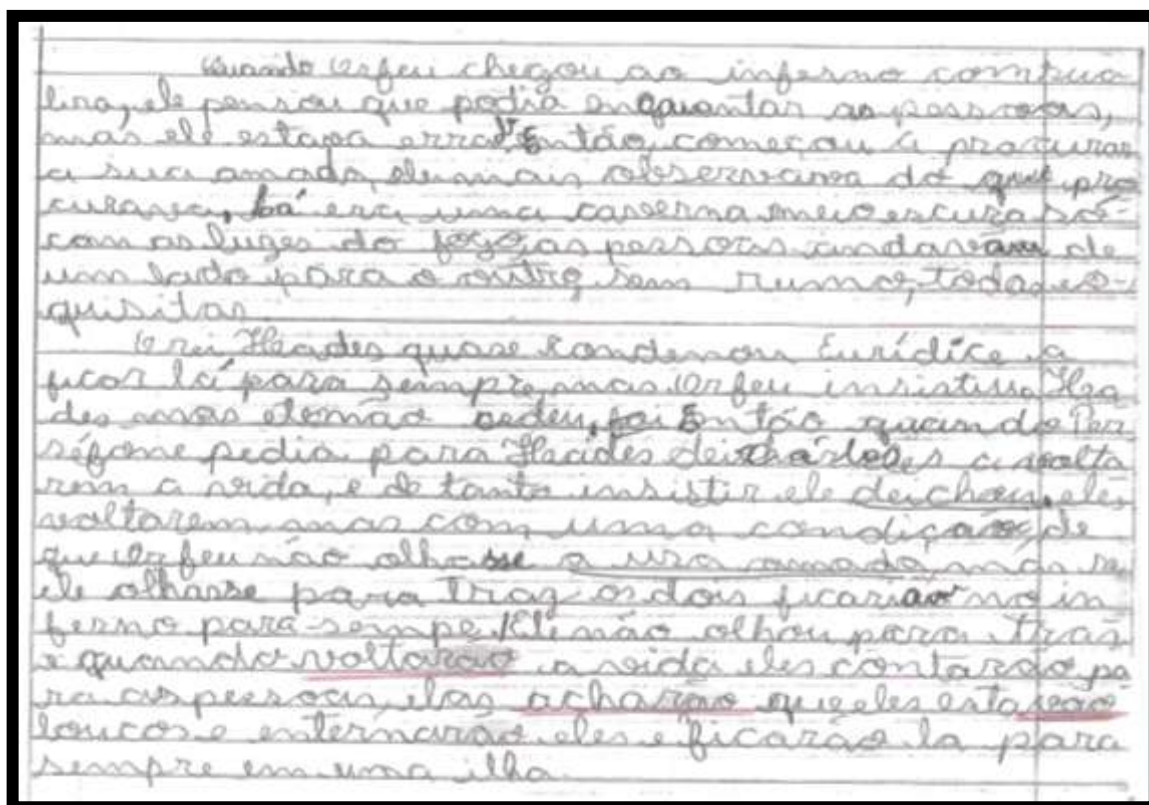 Quando Orfeu chegou ao inferno com sua
lira, ele pensou que podia enquantar as pessoas,
mas ele estava errado. Então, começou a procurar
a sua amada, ele mais observava do que pro
curava, Lá era uma caverna meio escura só
com as luzes do fogo, as pessoas andavam de
um lado para o outro sem rumo, todas es-
quisitas.
O rei Heades quase condenou Eurídice a
ficar lá para sempre, mas Orfeu insistiu Hea
des mas ele não cedeu, foi Então quando Per
séfone pedia para Heades a volta
rem a vida, e de tanto insistir ele deichou eles
voltarem, mas com uma condição, de
que Orfeu não olhasse a amada, mas se
ele olhasse para traz os dois ficariam no in
ferno para sempe. Ele não olhou para trás
e quando voltarão a vida eles contarão pa
ra as pessoas, elas acharão que eles estavão
loucos e internarão eles e ficarão la para
sempre em uma ilha.